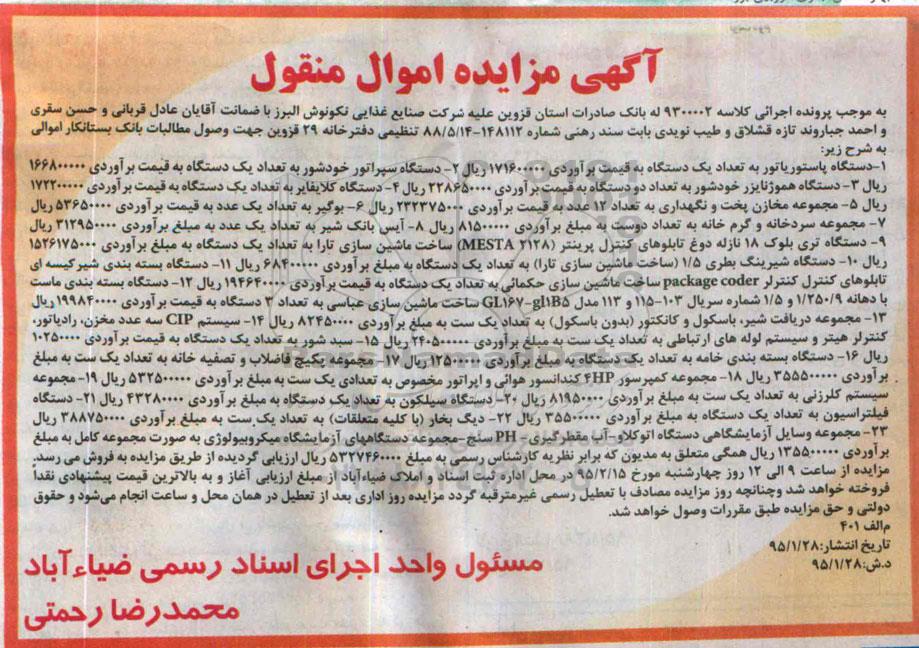 آگهی مزایده اموال منقول
به موجب پرونده اجرائی کلاسه ۹۳۰۰۰۰۲ له بانک صادرات استان قزوین علیه شرکت صنایع غذایی نکونوش البرز با ضمانت آقایان عادل قربانی و حسن سقری
و احمد جباروند تازه قشلاق و طیب نویدی بابت سند رهنی شماره ۱۴۸۱۱۲-۸۸/۵/۱۴ تنظیمی دفترخانه ۲۹ قزوین جهت وصول مطالبات بانک بستانکار اموالی
به شرح زیر:
۱-دستگاه پاستوریاتور به تعداد یک دستگاه به قیمت برآوردی ۱۷۱۶۰۰۰۰۰۰ ریال ۲- دستگاه سپراتور خودشور به تعداد یک دستگاه به قیمت برآوردی ۱۶۶۸۰۰۰۰۰
ریال ۳- دستگاه هموژنایزر خودشور به تعداد دو دستگاه به قیمت برآوردی ۲۲۸۶۵۰۰۰۰ ریال ۴- دستگاه کلایفایر به تعداد یک دستگاه به قیمت برآوردی ۱۷۲۲۰۰۰۰۰
ریال ۵- مجموعه مخازن پخت و نگهداری به تعداد ۱۲ عدد به قیمت برآوردی ۲۳۲۳۷۵۰۰۰۰ ریال ۶- بوگیر به تعداد یک عدد به قیمت برآوردی ۵۳۶۵۰۰۰۰ ریال
۷- مجموعه سردخانه و گرم خانه به تعداد دوست به مبلغ برآوردی ۸۱۵۰۰۰۰۰ ریال ۸- آیس بانک شیر به تعداد یک عدد به مبلغ برآوردی ۳۱۲۹۵۰۰۰۰ ریال
۹- دستگاه تری بلوک ۱۸ نازله دوغ تابلوهای کنترل پرینتر (MESTA ۲۱۲۸) ساخت ماشین سازی تارا به تعداد یک دستگاه به مبلغ برآوردی ۱۵۲۶۱۷۵۰۰۰
ریال ۱۰- دستگاه شیرینگ بطری ۱/۵ (ساخت ماشین سازی تارا) به تعداد یک دستگاه به مبلغ برآوردی ۶۸۴۰۰۰۰۰ ریال ۱۱- دستگاه بسته بندی شیر کیسه ای
تابلوهای کنترل کنترلر package coder ساخت ماشین سازی حکمائی به تعداد یک دستگاه به قیمت برآوردی ۱۹۴۶۴۰۰۰۰ ریال ۱۲- دستگاه بسته بندی ماست
با دهانه ۱/۲۵۰/۹ و ۱/۵ شماره سریال ۱۰۳-۱۱۵ و ۱۱۳ مدل GL۱۶۷-gl۱B۵ ساخت ماشین سازی عباسی به تعداد ۳ دستگاه به قیمت برآوردی ۱۹۹۸۴۰۰۰۰ ریال
۱۳- مجموعه دریافت شیر، باسکول و کانکتور (بدون باسکول) به تعداد یک ست به مبلغ برآوردی ۸۲۴۵۰۰۰۰ ریال ۱۴- سیستم CIP سه عدد مخزن، رادیاتور،
کنترلر هیتر و سیستم لوله های ارتباطی به تعداد یک ست به مبلغ برآوردی ۲۴۰۵۰۰۰۰۰ ریال ۱۵- سبد شور به تعداد یک دستگاه به قیمت برآوردی ۱۰۲۵۰۰۰۰
ریال ۱۶- دستگاه بسته بندی خامه به تعداد یک دستگاه به مبلغ برآوردی ۱۲۵۰۰۰۰۰ ریال ۱۷- مجموعه پکیج فاضلاب و تصفیه خانه به تعداد یک ست به مبلغ
برآوردی ۳۵۵۵۰۰۰۰۰ ریال ۱۸- مجموعه کمپرسور ۴HP کندانسور هوائی و اپراتور مخصوص به تعدادی یک ست به مبلغ برآوردی ۵۳۲۵۰۰۰۰۰ ریال ۱۹- مجموعه
سیستم کلرزنی به تعداد یک ست به مبلغ برآوردی ۸۱۹۵۰۰۰۰ ریال ۲۰- دستگاه سیلکون به تعداد یک دستگاه به مبلغ برآوردی ۴۳۲۸۰۰۰۰ ریال ۲۱- دستگاه
فیلتراسیون به تعداد یک دستگاه به مبلغ برآوردی ۳۵۵۰۰۰۰۰ ریال ۲۲- دیگ بخار (با کلیه متعلقات) به تعداد یک ست به مبلغ برآوردی ۳۸۸۷۵۰۰۰۰ ریال
۲۳- مجموعه وسایل آزمایشگاهی دستگاه اتوکلاو- آب مقطرگیری- PH سنج-مجموعه دستگاههای آزمایشگاه میکروبیولوژی به صورت مجموعه کامل به مبلغ
برآوردی ۱۳۵۵۰۰۰۰۰ ریال همگی متعلق به مدیون که برابر نظریه کارشناس رسمی به مبلغ ۵۳۲۷۴۶۰۰۰۰ ریال ارزیابی گردیده از طریق مزایده به فروش می رسد.
مزایده از ساعت ۹ الی ۱۲ روز چهارشنبه مورخ ۹۵/۲/۱۵ در محل اداره ثبت اسناد و املاک ضیاءآباد از مبلغ ارزیابی آغاز و به بالاترین قیمت پیشنهادی نقداً
فروخته خواهد شد وچنانچه روز مزایده مصادف با تعطیل رسمی غیرمترقبه گردد مزایده روز اداری بعد از تعطیل در همان محل و ساعت انجام می‌شود و حقوق
دولتی و حق مزایده طبق مقررات وصول خواهد شد.
م‌الف ۴۰۱
تاریخ انتشار: ۹۵/۱/۲۸
د.ش: ۹۵/۱/۲۸
مسئول واحد اجرای اسناد رسمی ضیاءآباد
محمدرضا رحمتی